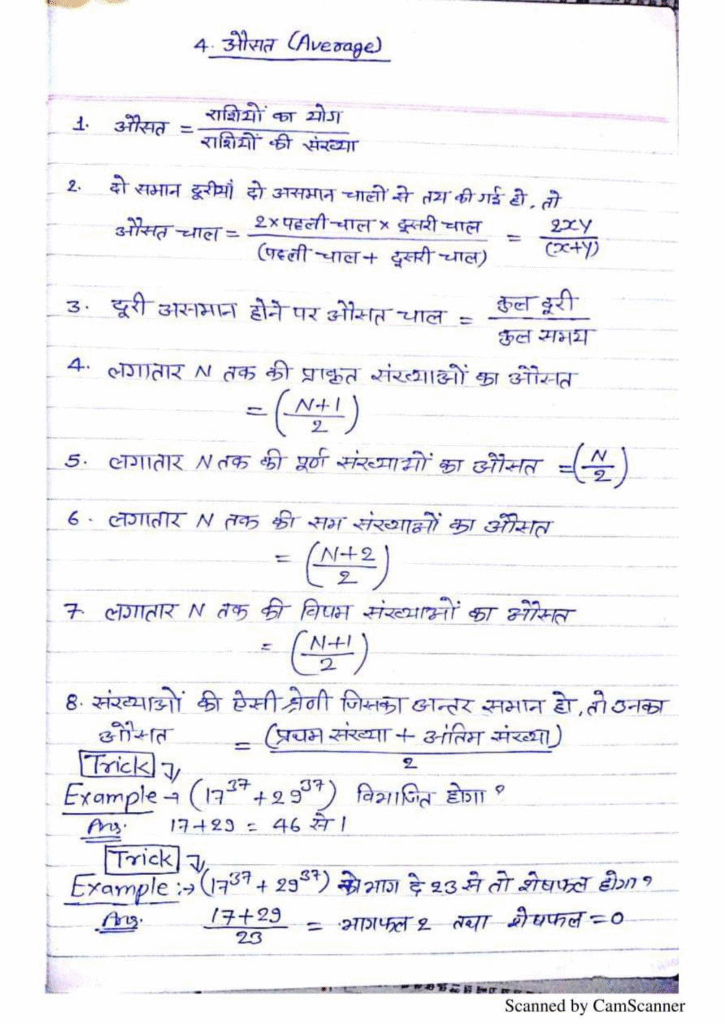 4. औसत (Average)
1. औसत = राशियों का योग / राशियों की संख्या
2. दो समान दूरीयां दो असमान चालों से तय की गई हो, तो
औसत चाल = 2×पहली चाल × दूसरी चाल / (पहली चाल + दूसरी चाल) = 2xy / (x+y)
3. दूरी असमान होने पर औसत चाल = कुल दूरी / कुल समय
4. लगातार N तक की प्राकृत संख्याओं का औसत
= (N+1 / 2)
5. लगातार N तक की पूर्ण संख्याओं का औसत = (N / 2)
6. लगातार N तक की सम संख्याओं का औसत
= (N+2 / 2)
7 लगातार N तक की विषम संख्याओं का औसत
= (N+1 / 2)
8. संख्याओं की ऐसी श्रेणी जिसका अन्तर समान हो, तो उनका
औसत = (प्रथम संख्या + अंतिम संख्या) / 2
Trick
Example → (17^37 + 29^37) विभाजित होगा ?
Ans. 17+29 = 46 से।
Trick
Example :→ (17^37 + 29^37) को भाग दे 23 से तो शेषफल होगा ?
Ans. 17+29 / 23 = भागफल 2 तथा शेषफल = 0
Scanned by CamScanner